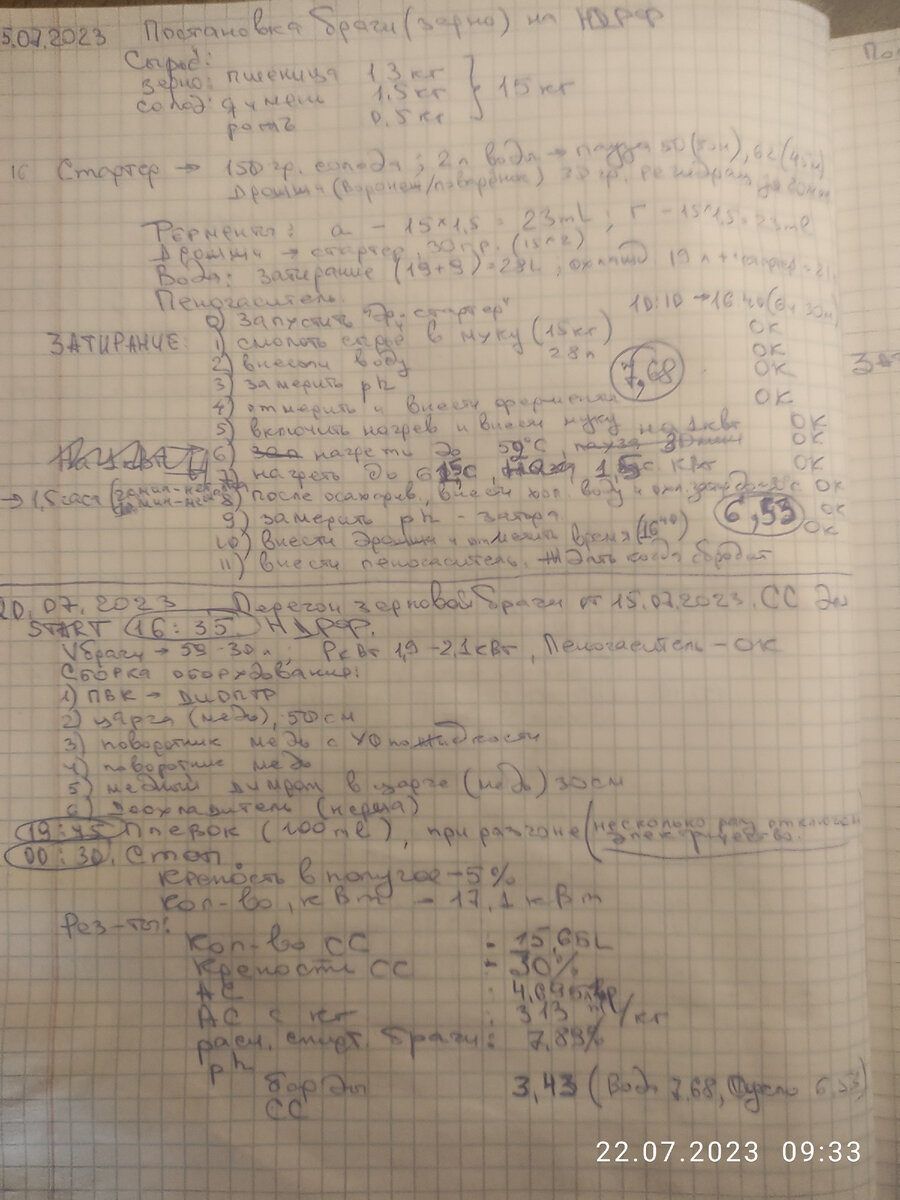 5.07.2023 Постановка браги (зерно) на НДРФ
Сырьё:
зерно: пшеница 13 кг
солод: ячмень 1,5 кг } 15 кг
рожь 0,5 кг
Стартер → 150 гр. солода; 2л воды → пауза 50
Дрожжи (Воронеж/поварёнок) 30 гр.
Ферменты: а - 15*1,5 = 23mL; Г - 15*1,5 = 23ml
Дрожжи → стартер, 30 гр. (15*2)
Вода: затирание (19+9) = 28L, охлажд. 19 л + стартер =
Пеногаситель
10:10 → 16 40 (6ч 30м)
0) Запустить "Др. стартер"
ЗАТИРАНИЕ: 1) смолоть сырьё в муку (15 кг) ОК
2) внесли воду 28л ОК
3) замерить ph 7,68 ОК
4) отмерить и внести ферменты ОК
5) включить нагрев и внести муку на 1 квт ОК
6) нагреть до 59°C, ОК
7) нагреть до ОК
→ 1,5 часа 8) После осахарев., внести хол. воду и охл. ОК
9) замерить ph - затора 6,53 ОК
10) внести дрожжи и отметить время (16 40) ОК
11) внести пеногаситель. Ждать когда сбродит
20.07.2023 Перегон зерновой браги от 15.07.2023. СС
START 16:35 НДРФ.
Vбраги → 59 -30 л; РкВт 1,9 -2,1 кВт, Пеногаситель - ОК
Сборка оборудования:
1) ПВК → ДИОПТР
2) царга (медь), 50 см
3) поворотник медь с УО по жидкости
4) поворотник медь
5) медный димрот в царге (медь) 30 см
6) Доохладитель (нержа)
19:45 Ппервок (100ml), при разгоне (несколько раз отключен
электричество.
00:30. Стоп.
крепость в попугае - 5%
кол-во, кВт → 17,1 кВт
Рез-ты:
Кол-во СС - 15,65L
Крепость СС - 30%
АС : 4,695
АС с кг : 313 /кг
расч. спирт. браги: 7,89%
ph
барды 3,43 (Вода 7,68, Сусло 6,53)
СС
22.07.2023 09:33